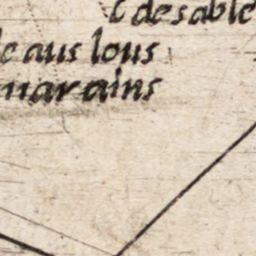 c de sable
le aus lous
marains